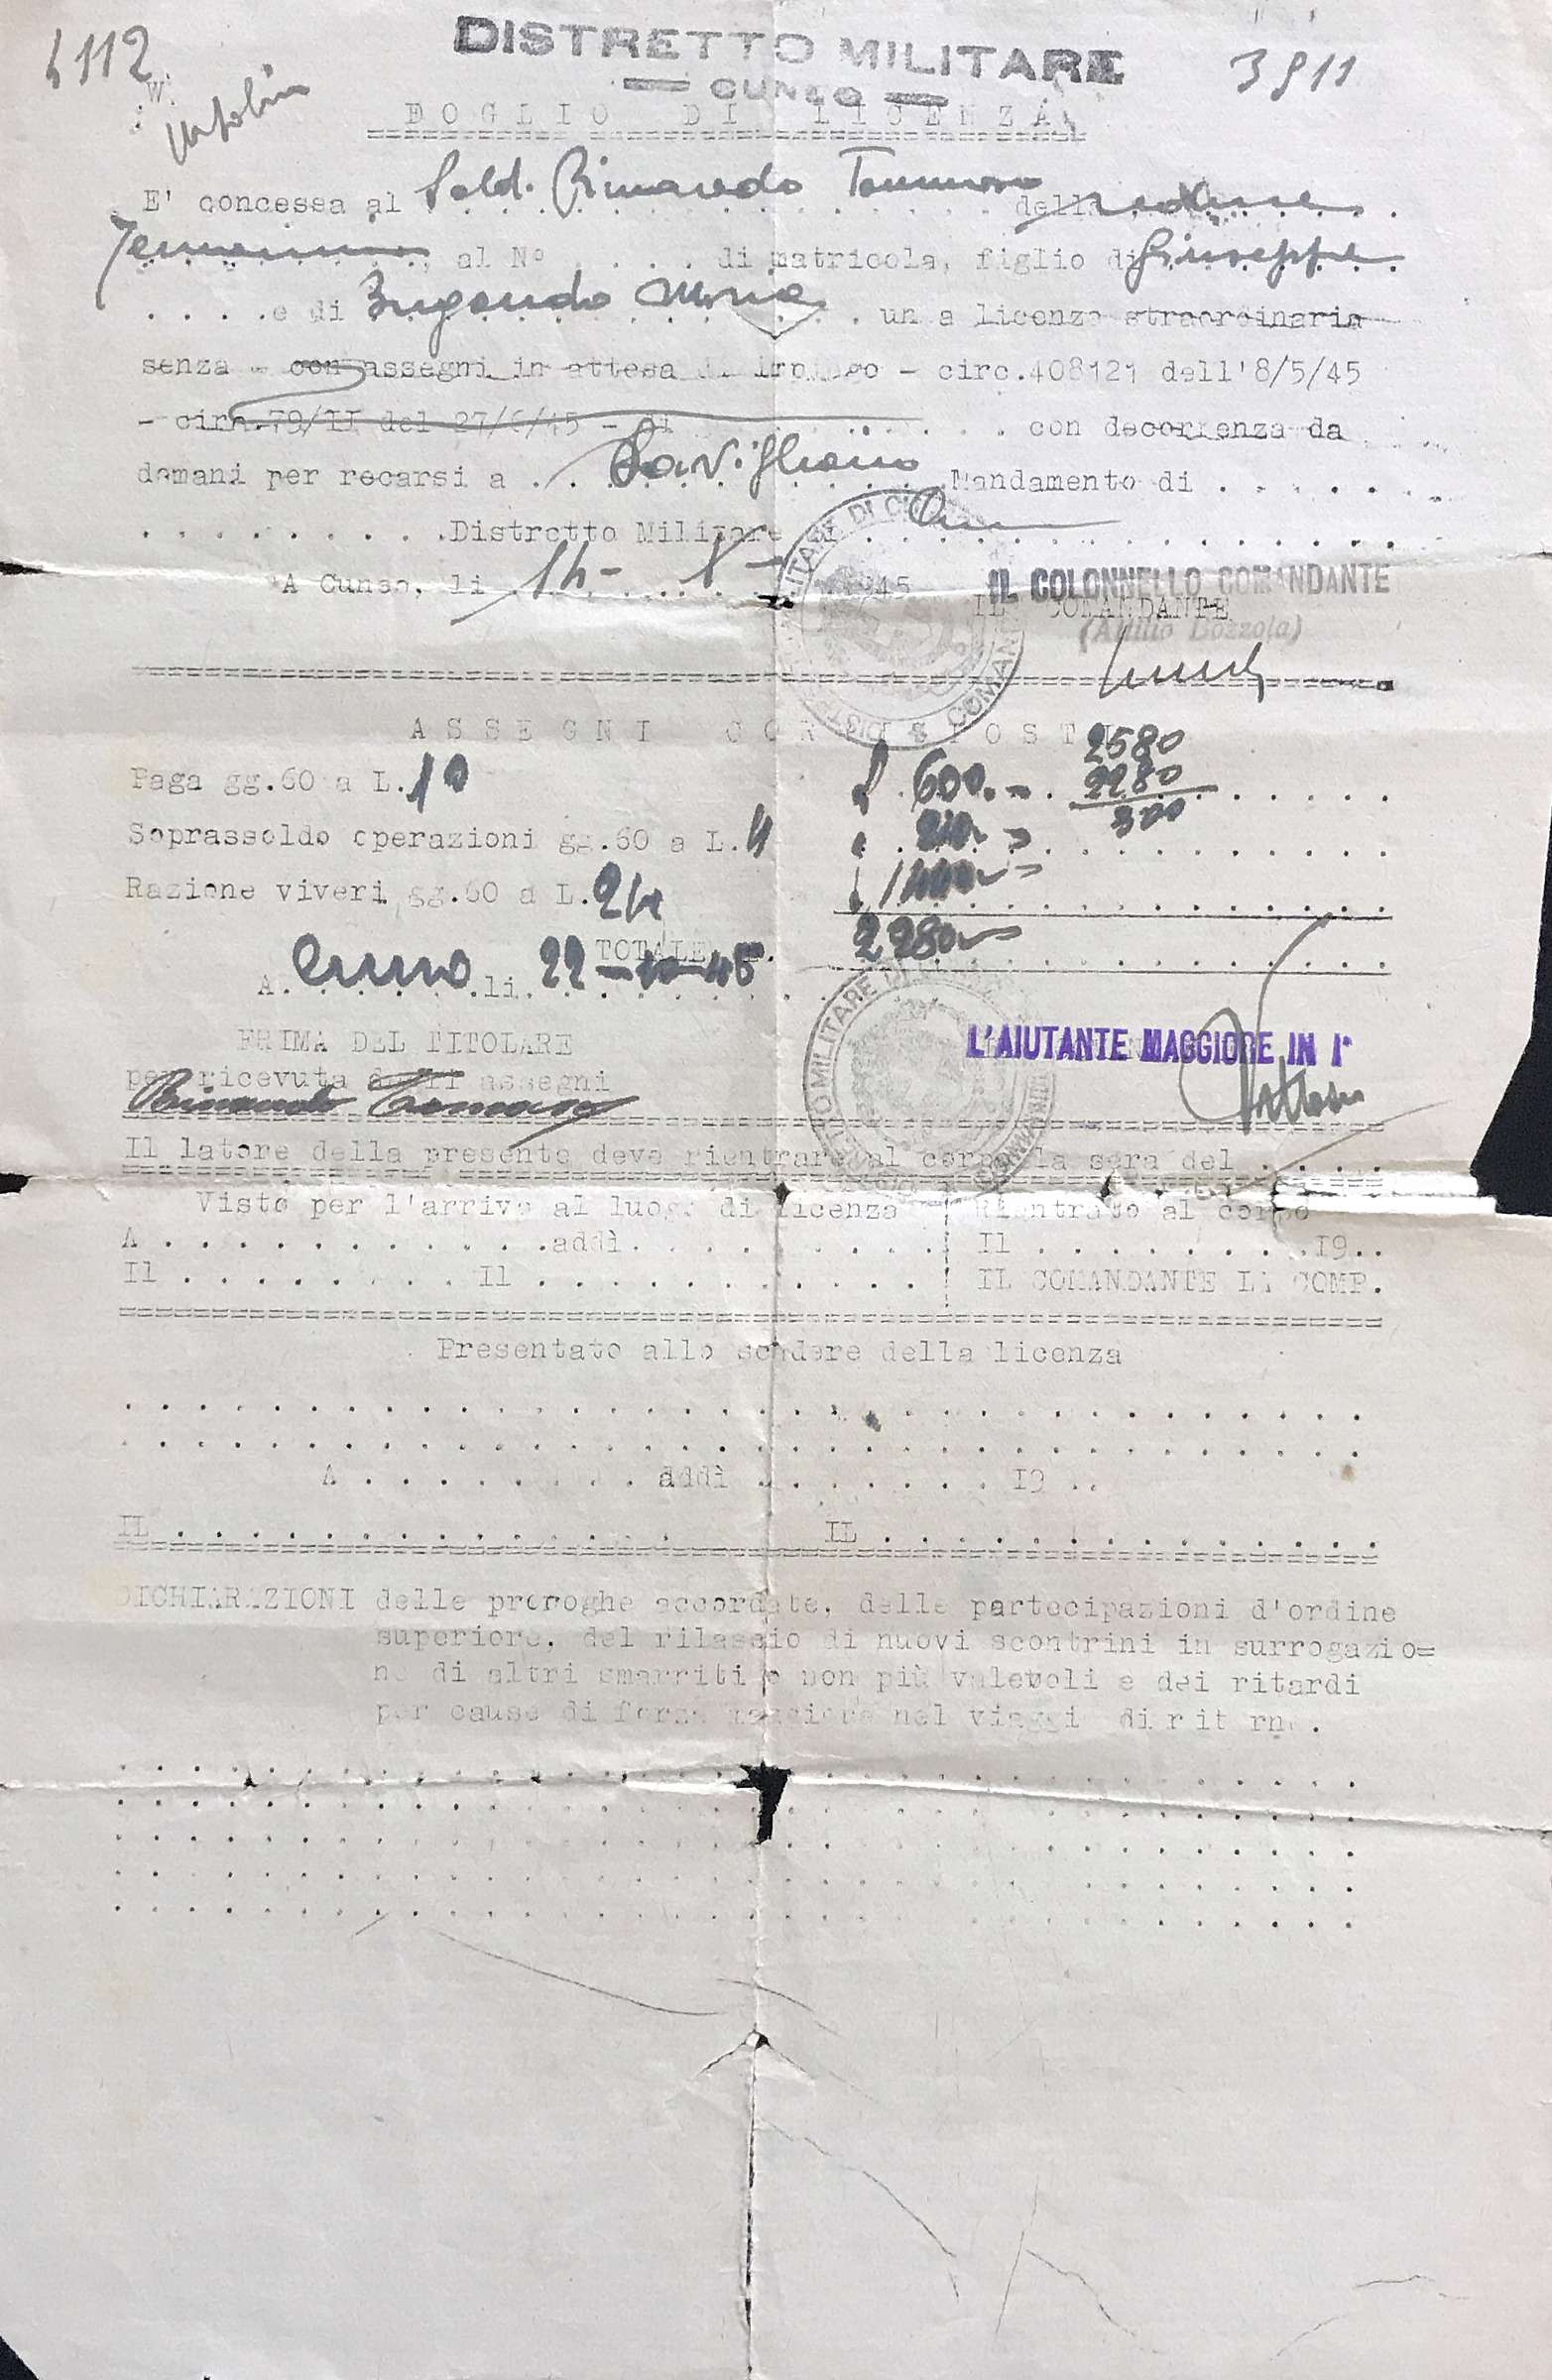 4112
DISTRETTO MILITARE
3911
CUNEO
FOGLIO DI LICENZA
E' concessa al Sold. Rinaredo Tommaso della
al N° . . . . di matricola, figlio di Giuseppe
. . . . e di Brugando Maria . un a licenza straordinaria
senza - con assegni in attesa di impiego - circ.408121 dell'8/5/45
- circ.79/II del 27/6/45 - di . . . . . con decorrenza da
domani per recarsi a . . Savigliano Mandamento di . . . . . .
. . . . . . . . . .Distretto Militare di . . . . . . . . . . . . . . . .
A Cuneo, li 14- 45 IL COLONNELLO COMANDANTE
IL COMANDANTE
(Attilio Bozzola)
ASSEGNI CORRISPOSTI
2580
Paga gg.60 a L.10 £ 600.- 2280
300
Soprassoldo operazioni gg.60 a L.4
Razione viveri gg.60 a L.24
TOTALE 2280
A. Cuneo .li. 22-10-45
FRIMA DEL TITOLARE
L'AIUTANTE MAGGIORE IN 1ª
per ricevuta degli assegni
Rinaredo Tommaso
Il latore della presente deve rientrare al corpo la sera del . . . .
Visto per l'arrivo al luogo di licenza Rientrato al corpo
A . . . . . . . . . . . . .addì. . . . . . . . . . Il . . . . . . . . .19..
Il . . . . . . . . . Il . . . . . . . . . . . . IL COMANDANTE LA COMP.
Presentato allo scadere della licenza
A . . . . . . . . . addì . . . . . . . . 19 ..
IL . . . . . . . . . . . . . . . . IL . . . . . . . . . . . . . . . .
DICHIARAZIONI delle proroghe accordate, delle partecipazioni d'ordine
superiore, del rilascio di nuovi scontrini in surrogazio=
ne di altri smarriti o non più valevoli e dei ritardi
per cause di forza maggiore nel viaggi di ritorno.